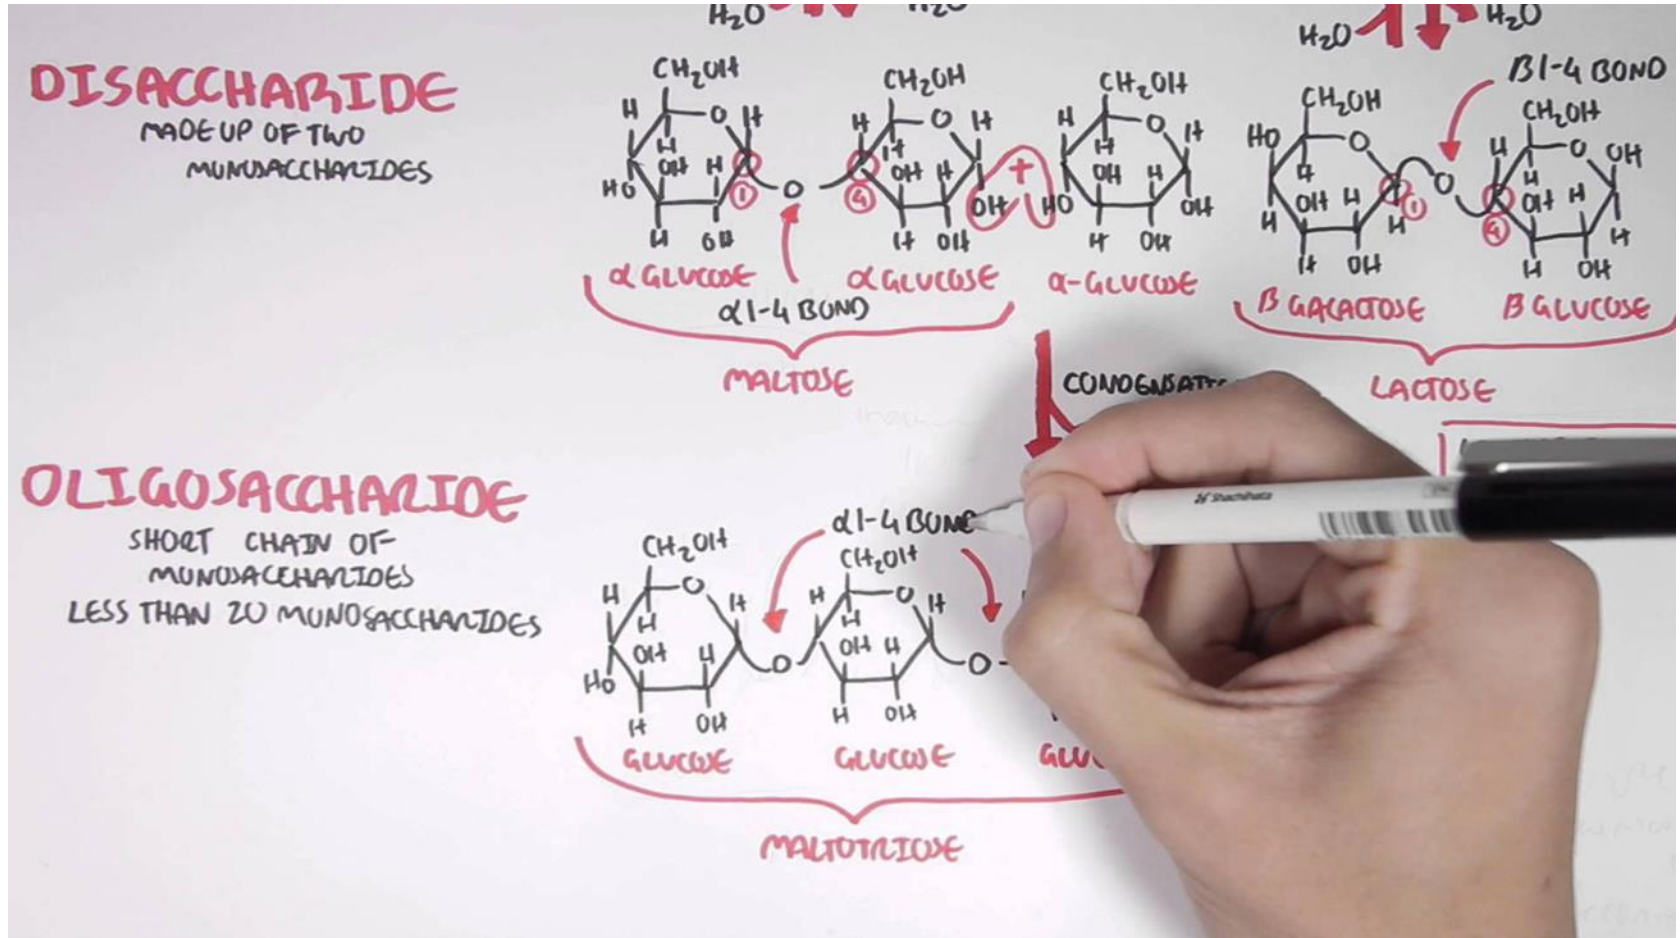 H₂O H₂O
H₂O H₂O
DISACCHARIDE
MADE UP OF TWO
MONOSACCHARIDES
CH₂OH CH₂OH CH₂OH
H O H H O H H O H
H H H
OH H OH H OH H
HO ① O ④ OH + HO OH
H OH H OH H OH
α GLUCOSE α GLUCOSE α-GLUCOSE
α1-4 BOND
MALTOSE
β1-4 BOND
CH₂OH CH₂OH
HO O H O OH
H H
OH H O OH H
H ① H ④ H
H OH H OH
β GALACTOSE β GLUCOSE
LACTOSE
OLIGOSACCHARIDE
SHORT CHAIN OF
MONOSACCHARIDES
LESS THAN 20 MONOSACCHARIDES
α1-4 BOND
CH₂OH CH₂OH
H O H H O H
H H
OH H OH H
HO O O
H OH H OH
GLUCOSE GLUCOSE
MALTOTRIOSE
Shachihata